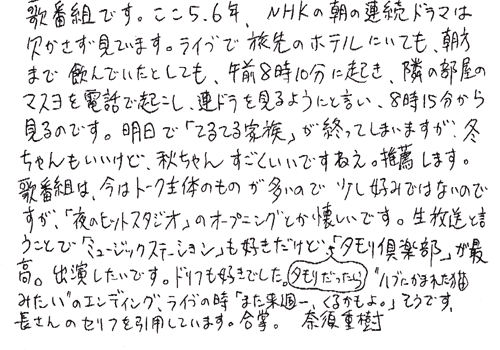 歌番組です。ここ5.6年、NHKの朝の連続ドラマは
欠かさず見ています。ライブで旅先のホテルにいても、朝方
まで飲んでいたとしても、午前8時10分に起き、隣の部屋の
マスヨを電話で起こし、連ドラを見るようにと言い、8時15分から
見るのです。明日で「てるてる家族」が終ってしまいますが、冬
ちゃんもいいけど、秋ちゃんすごくいいですねえ。推薦します。
歌番組は、今はトーク主体のものが多いので少し好みではないので
すが、「夜のヒットスタジオ」のオープニングとか懐しいです。生放送と言
うことで「ミュージックステーション」も好きだけど、「タモリ倶楽部」が最
高。出演したいです。ドリフも好きでした。タモリだったら"ハブにかまれた猫
みたい"のエンディング、ライブの時「また来週ー、くるかもよ。」そうです、
長さんのセリフを引用しています。合掌。 奈須重樹